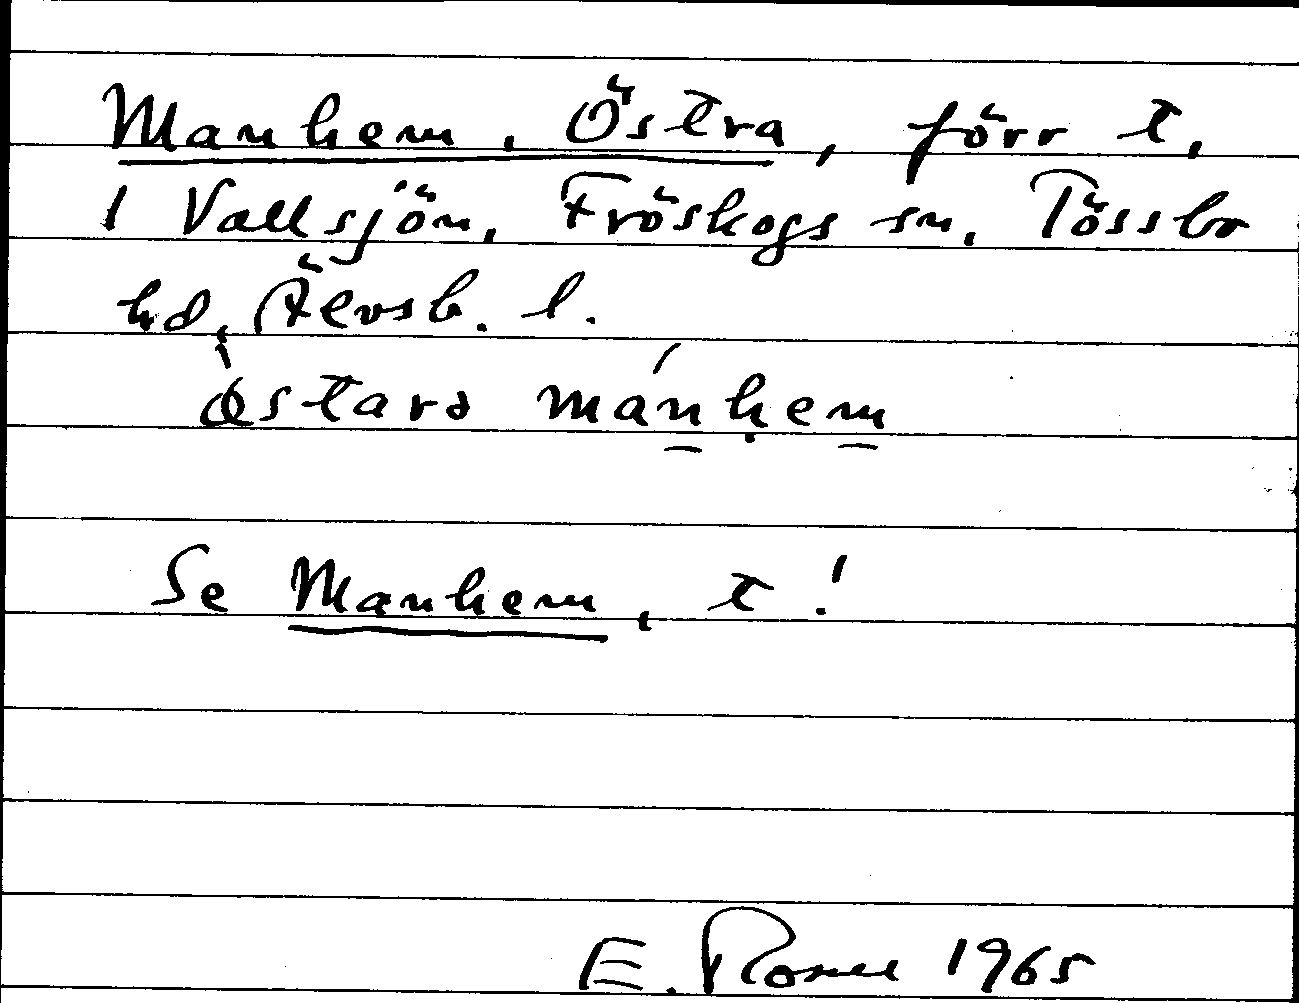 Manhem, Östra, förr t.
i Vallsjön, Fröskogs sn, Tössbo
hd, Älvsb. l.
östarə mánhem
Se Manhem, t!
E. 1965